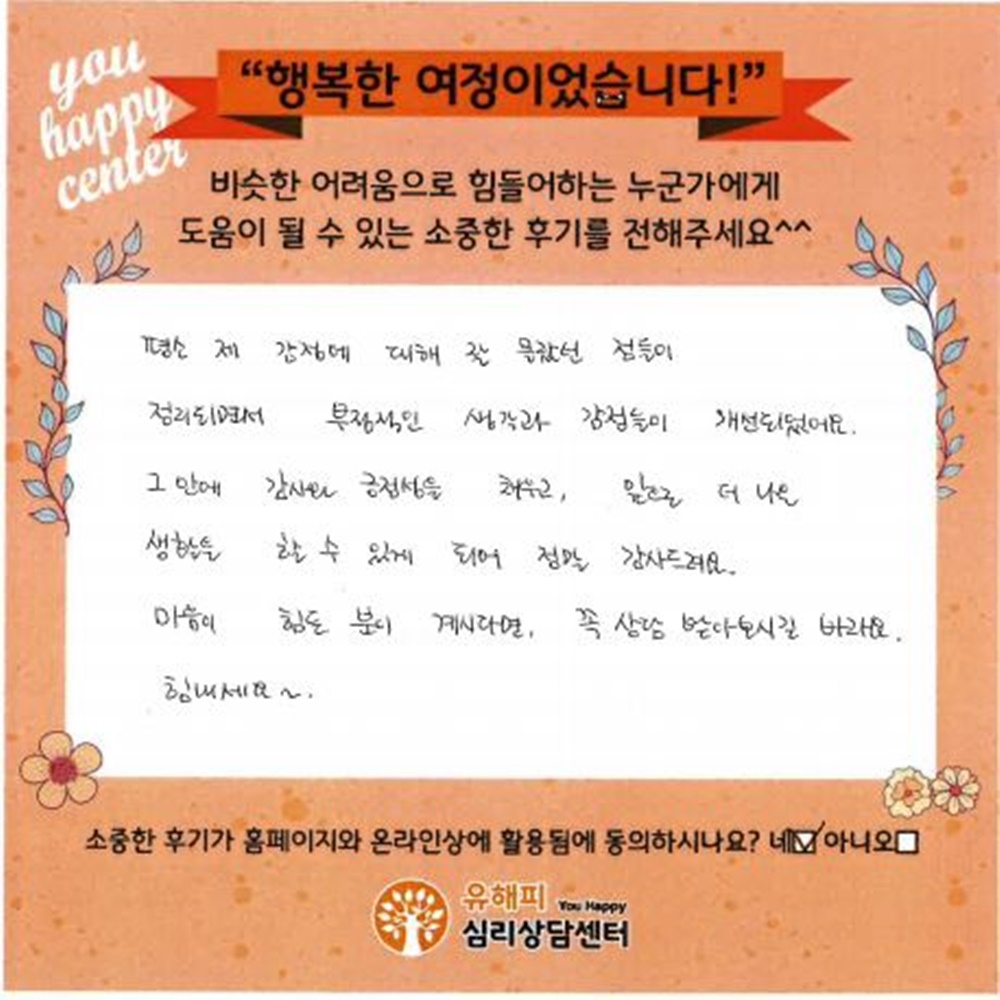 you
happy
center
“행복한 여정이었습니다!”
비슷한 어려움으로 힘들어하는 누군가에게
도움이 될 수 있는 소중한 후기를 전해주세요^^
평소 제 감정에 대해 잘 몰랐던 점들이
정리되면서 부정적인 생각과 감정들이 개선되었어요.
그 안에 감사와 긍정성을 채우고, 앞으로 더 나은
생활을 할 수 있게 되어 정말 감사드려요.
마음이 힘든 분이 계시다면, 꼭 상담 받아보시길 바라요.
힘내세요~.
소중한 후기가 홈페이지와 온라인상에 활용됨에 동의하시나요? 네☑ 아니오☐
유해피 You Happy
심리상담센터